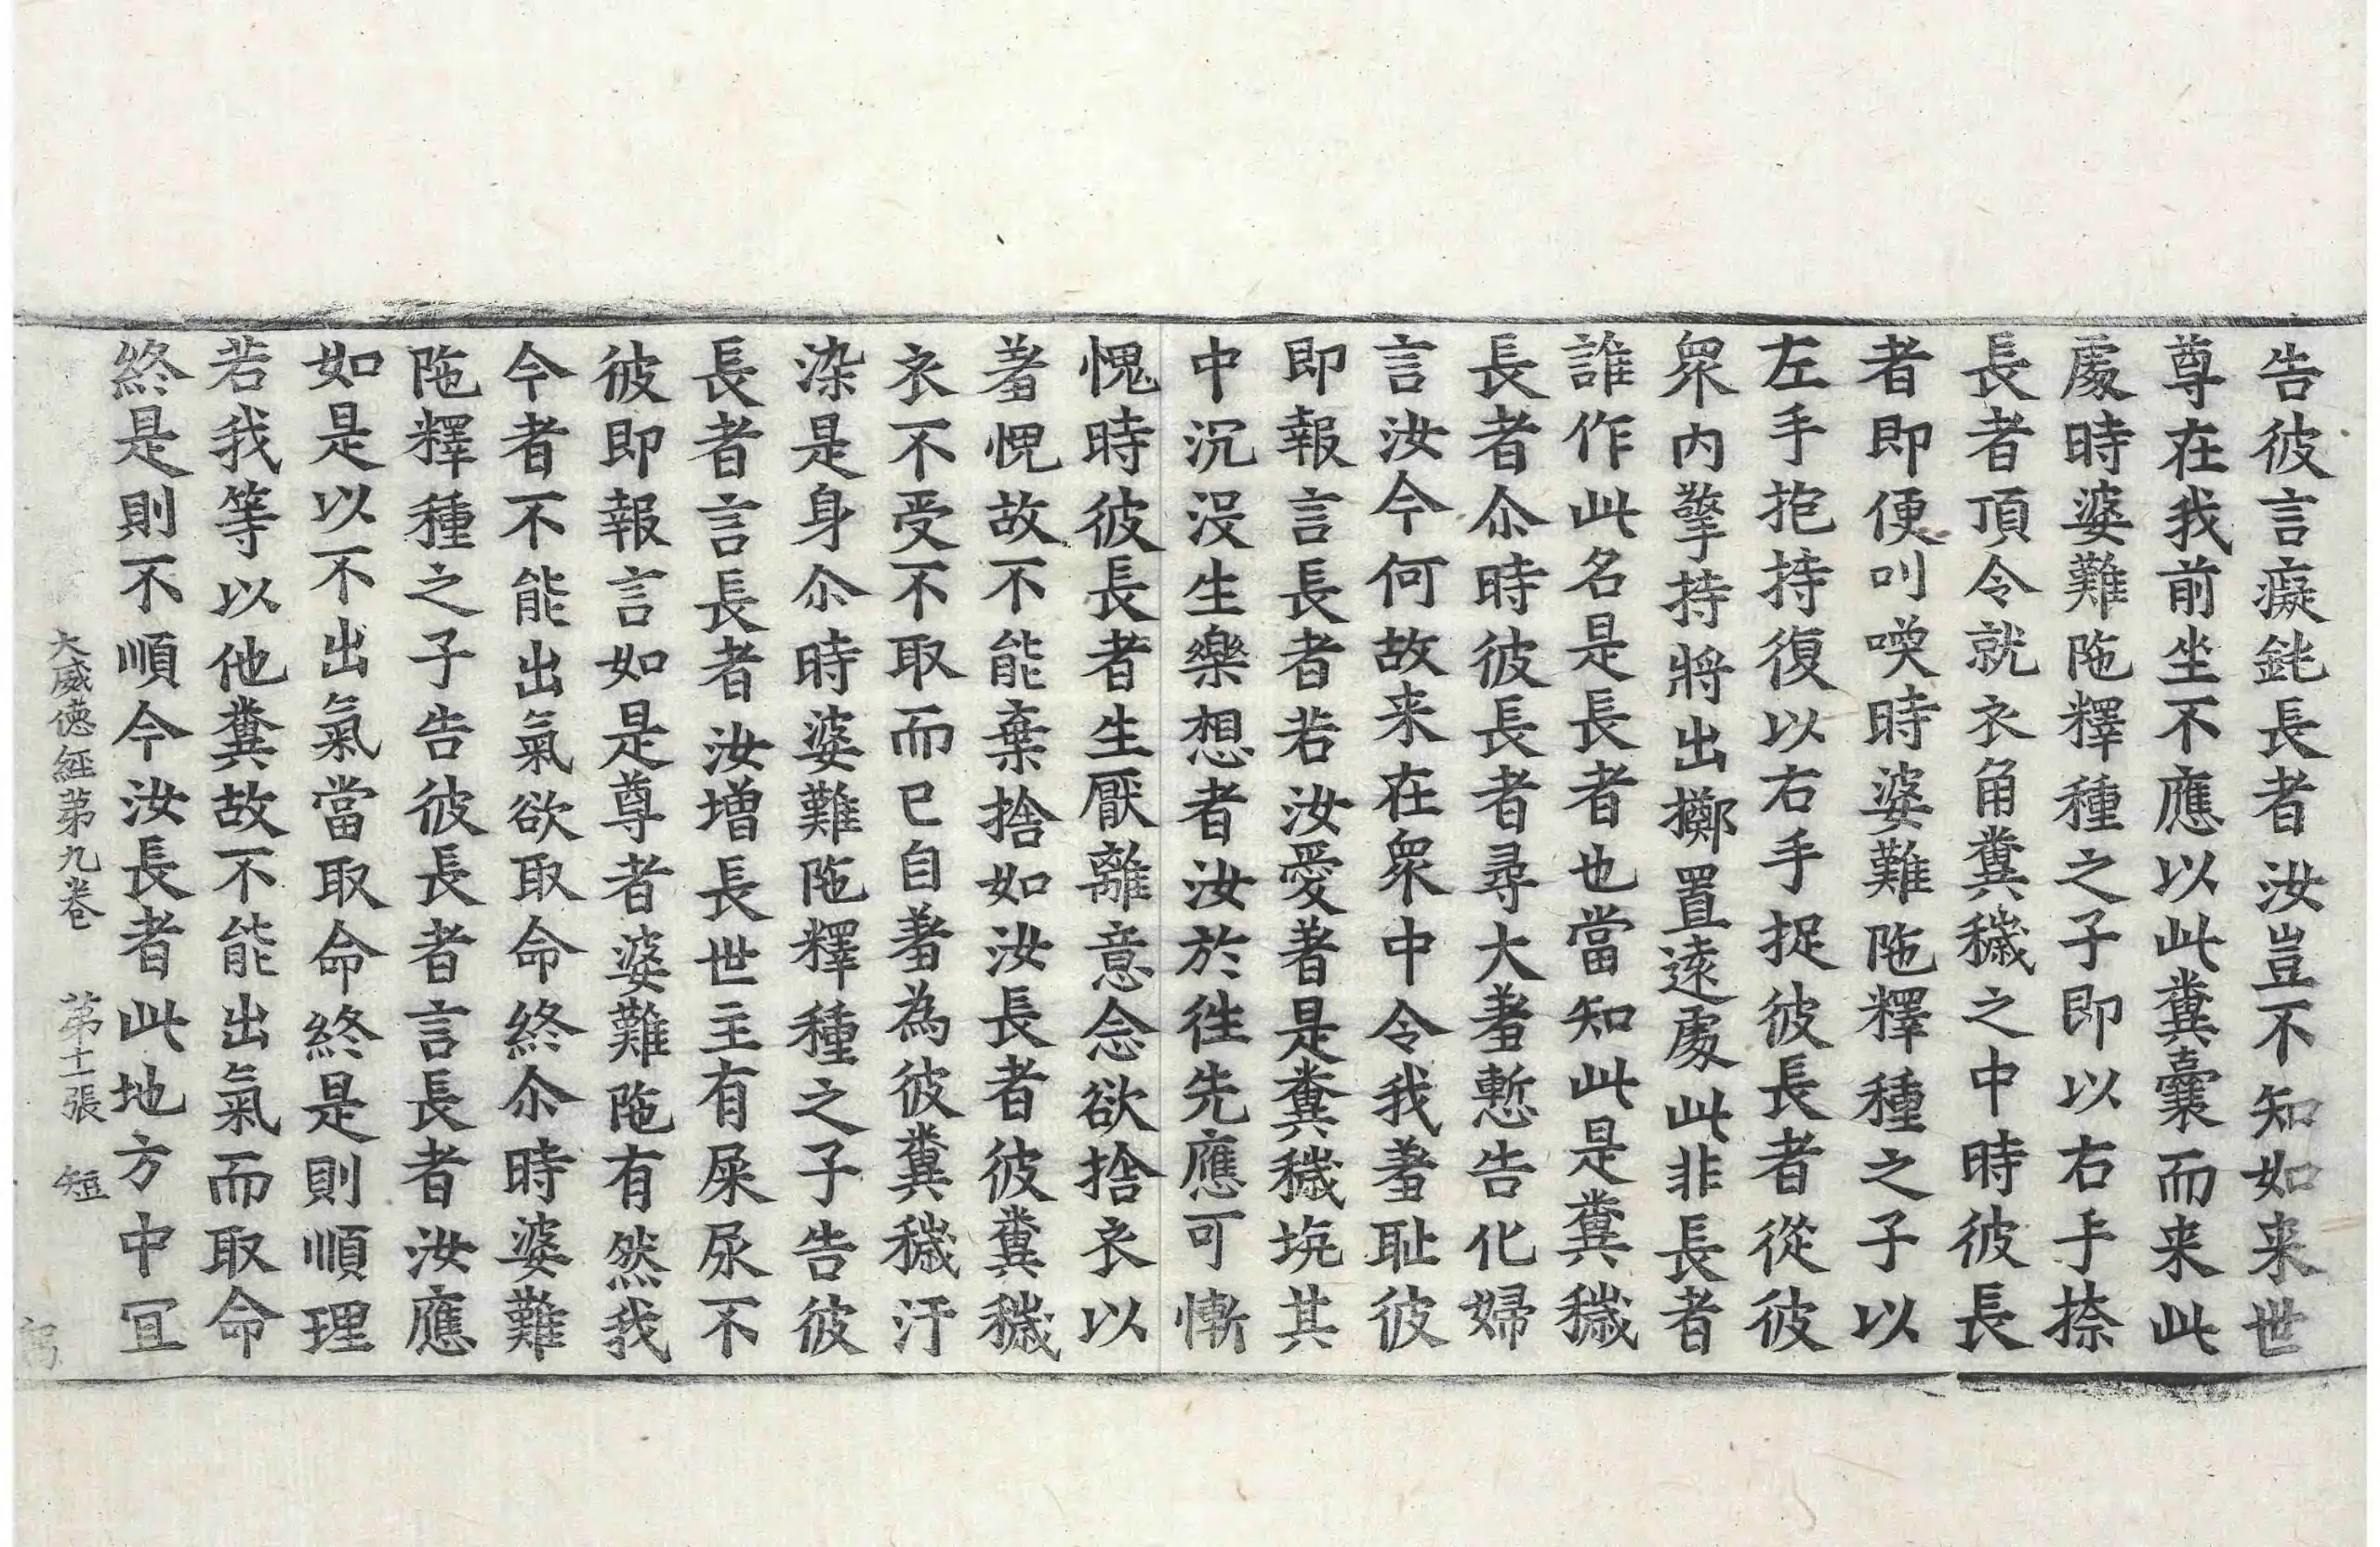 告彼言癡鈍長者汝豈不知如来世
尊在我前坐不應以此糞囊而来此
處時婆難陁釋種之子即以右手捺
長者頂令就衣角糞穢之中時彼長
者即便叫喚時婆難陁釋種之子以
左手抱持復以右手捉彼長者從彼
衆内擎持將出擲置遠處此非長者
誰作此名是長者也當知此是糞穢
長者尒時彼長者尋大羞慙告化婦
言汝今何故来在衆中令我羞耻彼
即報言長者若汝愛著是糞穢坑其
中沉没生樂想者汝於徃先應可慚
愧時彼長者生厭離意念欲捨衣以
羞愧故不能棄捨如汝長者彼糞穢
衣不受不取而已自羞為彼糞穢汙
染是身尒時婆難陁釋種之子告彼
長者言長者汝增長世主有屎尿不
彼即報言如是尊者婆難陁有然我
今者不能出氣欲取命終尒時婆難
陁釋種之子告彼長者言長者汝應
如是以不出氣當取命終是則順理
若我等以他糞故不能出氣而取命
終是則不順今汝長者此地方中冝
大威德經第九卷　第十一張　短